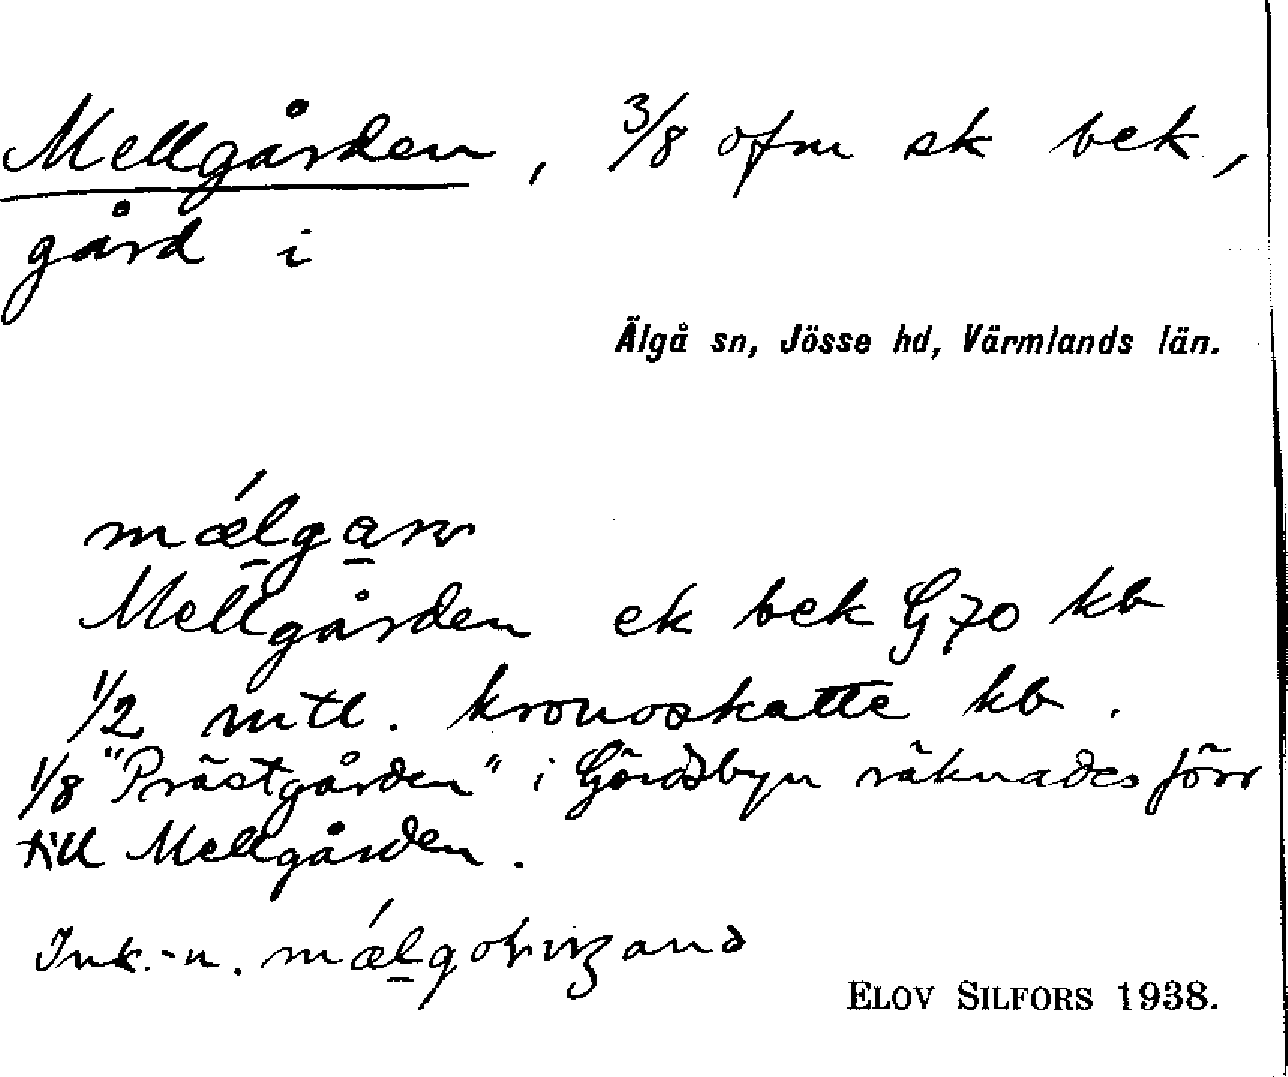 Mellgården, 3/8 ofm sk bek,
gård i
Älgå sn, Jösse hd, Värmlands län.
Mellgården ek bek G 70 kb
1/2 mtl. kronoskatte kb.
1/8 "Prästgården" i Gördsbyn räknades förr
till Mellgården.
Ink.-n.
ELOV SILFORS 1938.